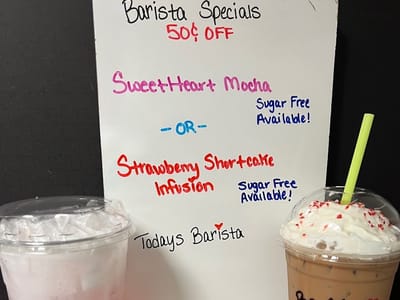 Barista Specials
50¢ OFF
SweetHeart Mocha
Sugar Free
Available!
-OR-
Strawberry Shortcake
Infusion
Sugar Free
Available!
Todays Barista